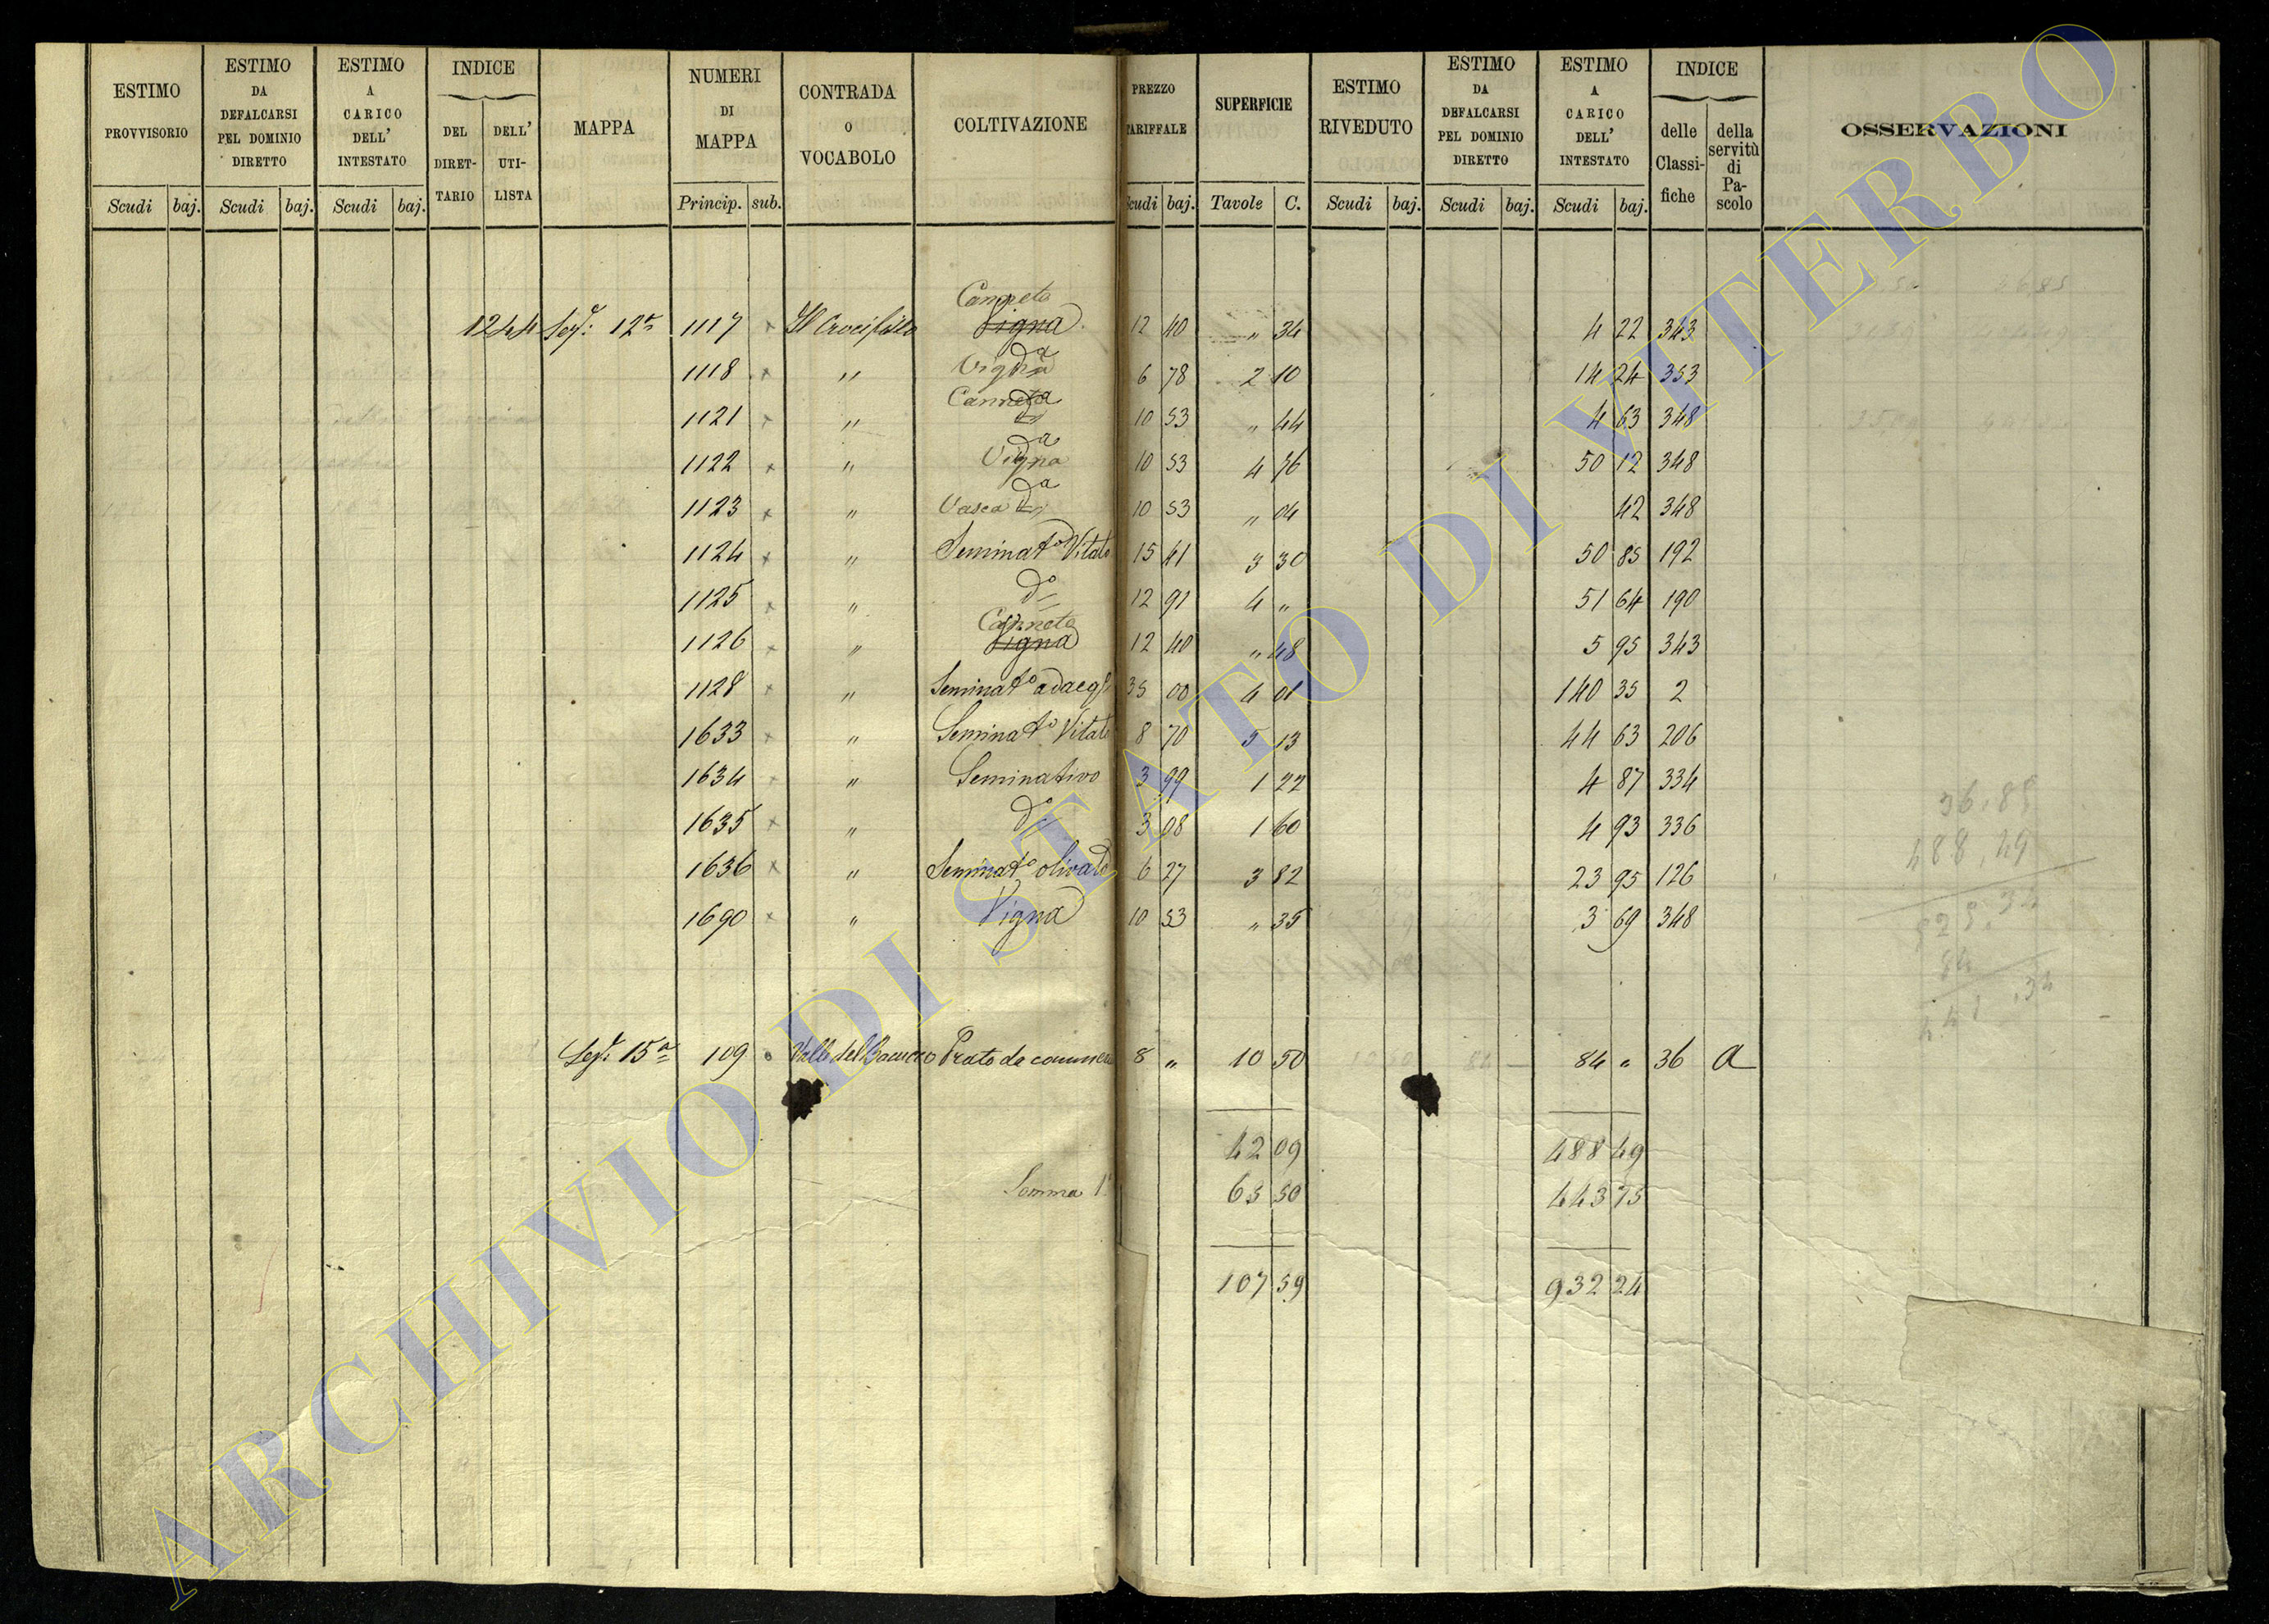 ESTIMO PROVVISORIO Scudi baj. | ESTIMO DA DEFALCARSI PEL DOMINIO DIRETTO Scudi baj. | ESTIMO A CARICO DELL' INTESTATO Scudi baj. | INDICE DEL DIRET-TARIO DELL' UTI-LISTA | MAPPA | NUMERI DI MAPPA Princip. sub. | CONTRADA O VOCABOLO | COLTIVAZIONE | PREZZO TARIFFALE Scudi baj. | SUPERFICIE Tavole C. | ESTIMO RIVEDUTO Scudi baj. | ESTIMO DA DEFALCARSI PEL DOMINIO DIRETTO Scudi baj. | ESTIMO A CARICO DELL' INTESTATO Scudi baj. | INDICE delle Classi-fiche della servitù di Pa-scolo | OSSERVAZIONI
Canneto
1244 Sez.e 12a 1117 Il Crocifisso Vigna 12 40 " 34 4 22 343
1118 " Vigna da 6 78 2 10 14 24 353
1121 " Canneto 10 53 " 44 4 63 348
1122 " Vigna da 10 53 4 76 50 12 348
1123 " Vasca da 10 53 " 04 42 348
1124 " Seminato Vitato 15 41 3 30 50 85 192
1125 " do 12 91 4 " 51 64 190
Canneto
1126 " Vigna 12 40 " 48 5 95 343
1128 " Seminato adacq 35 00 4 01 140 35 2
1633 " Seminato Vitato 8 70 5 13 44 63 206
1634 " Seminativo 3 99 1 22 4 87 334
1635 " do 3 08 1 60 4 93 336
1636 " Seminato olivato 6 27 3 82 23 95 126
1690 " Vigna 10 53 " 35 3 69 348
36,85
488,49
525,34
84
441,34
Sez.e 15a 109 Valle del Prato da 8 " 10 50 84 " 36 a
42 09 488 49
Somma 1a 65 50 443 75
107 59 932 24
ARCHIVIO DI STATO DI VITERBO